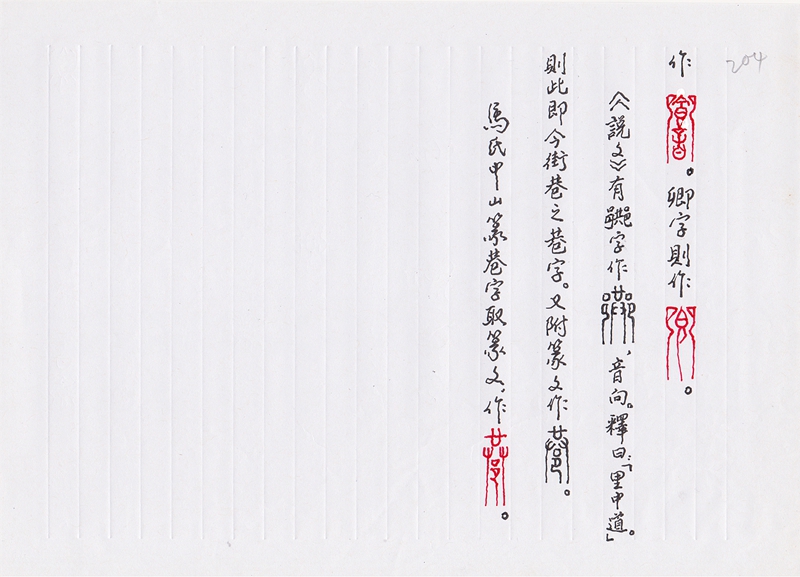 204
作。卿字則作。
《說文》有𨞠字作,音向。釋曰:「里中道。」
則此即今街巷之巷字。又附篆文作。
馬氏中山篆巷字取篆文,作。